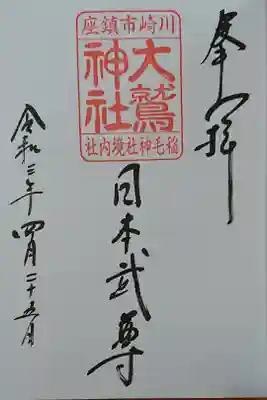 奉拝
川崎市鎮座
大鷲
神社
稲毛神社境内社
日本武尊
令和三年四月二十五日